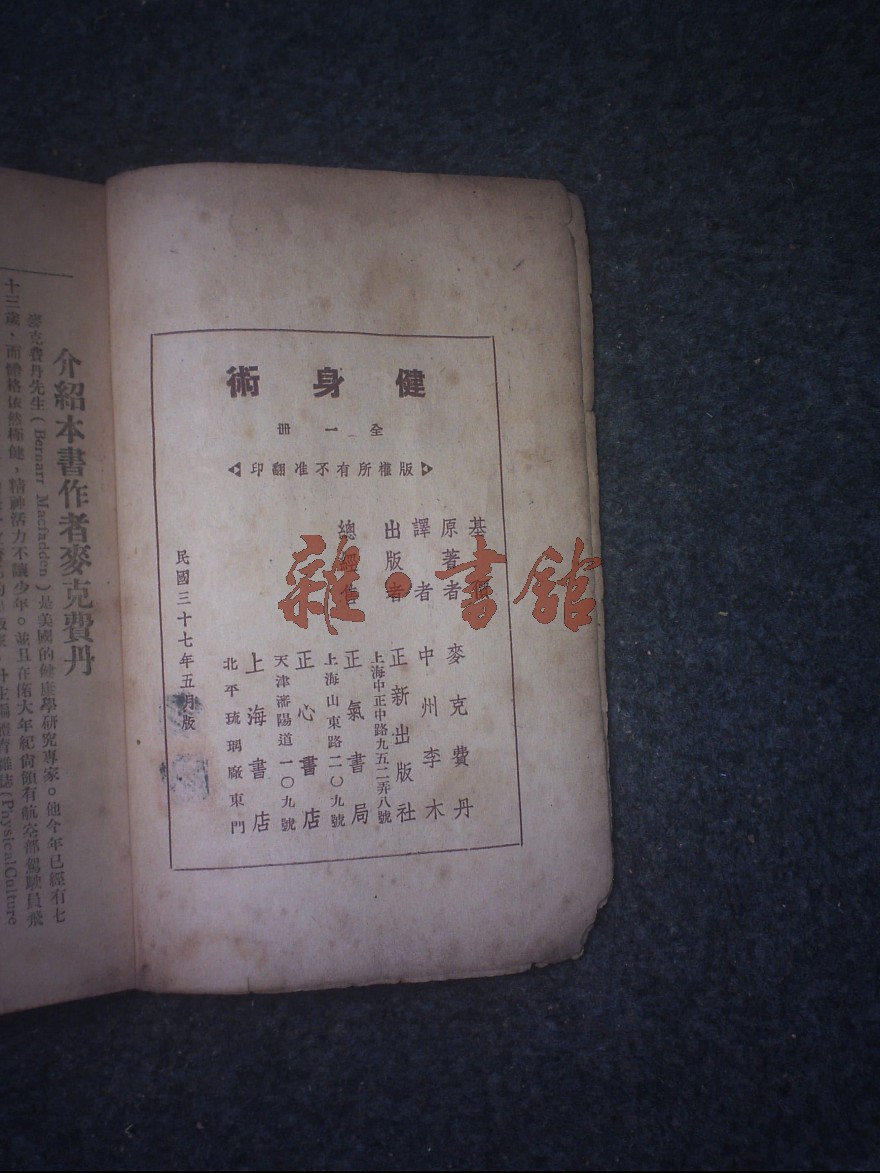 健身術
全一冊
版權所有不准翻印
基價
原著者 麥克費丹
譯者 中州李木
出版者 正新出版社
上海中正中路九五二弄八號
總經售 正氣書局
上海山東路二〇九號
正心書店
天津瀋陽道一〇九號
上海書店
北平琉璃廠東門
民國三十七年五月版
雜·書館
介紹本書作者麥克費丹
麥克費丹先生(Bernarr Macfadden)是美國的健康學研究專家。他今年已經有七
十三歲,而體格依然極健,精神活力不讓少年。並且在這大年紀尚領有航空部駕駛員飛
雜誌(Physical Culture